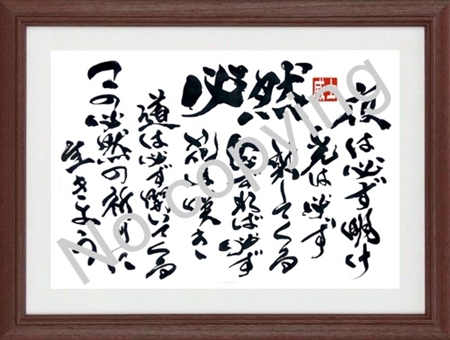 必然
夜は必ず明け
光は必ず
射してくる
念ずれば必ず
花は咲き
道は必ず開いてくる
この必然の祈りに
生きよう
No copying